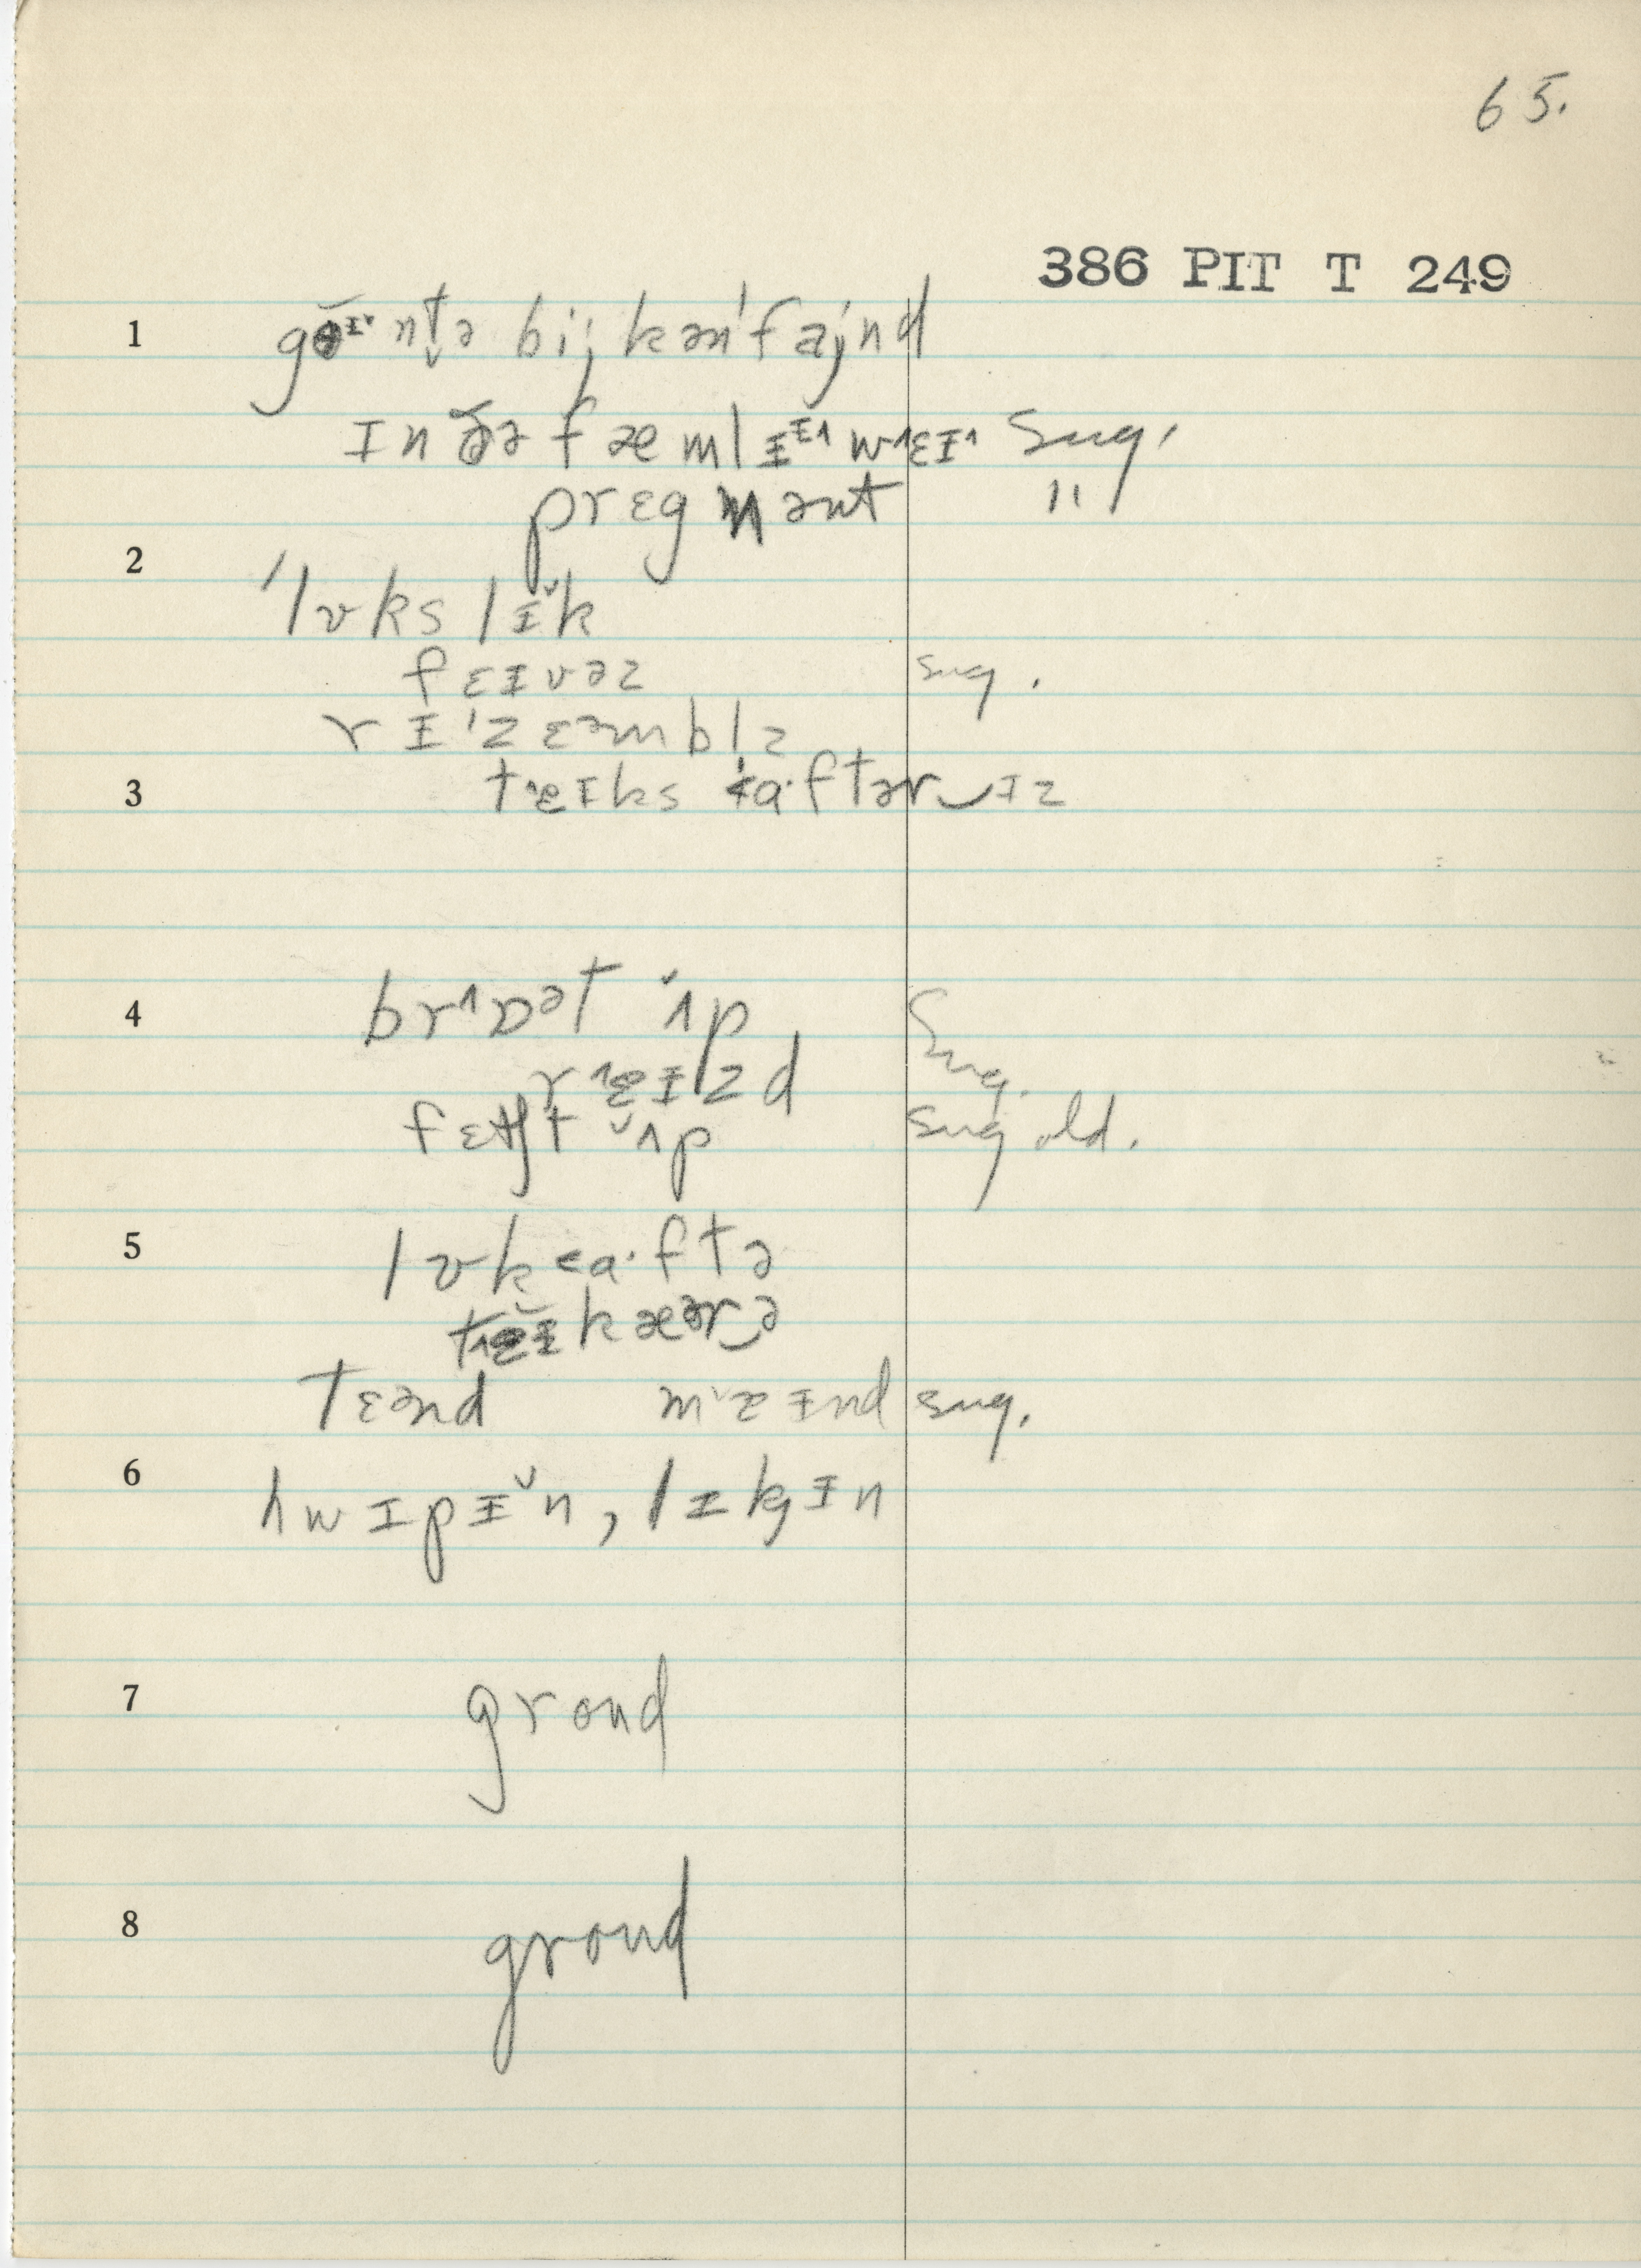 65.
386 PIT T 249
1 goɪ˅nt̬ə bi; kən'fa;nd
ɪn ðə fæmlɪɪ˄ w˄ɛɪ˄ sug.
prɛgnənt "
2 'lʊks lɪ˅k
fɛɪvəz sug.
rɪ'zɛəmblz
3 t˄ɛɪks ɑ·ftər‿ɪz
4 br˄ɒət ˅ʌp sug.
r˄ɛɪzd
fɛtʃt ˅ʌp sug old.
5 lʊk ɑ·ftə
t˄ɛɪ kæər‿ə
tɛənd m˅ɛɪnd sug.
6 hwɪpɪ˅n, lɪkɪn
7 groud
8 groud